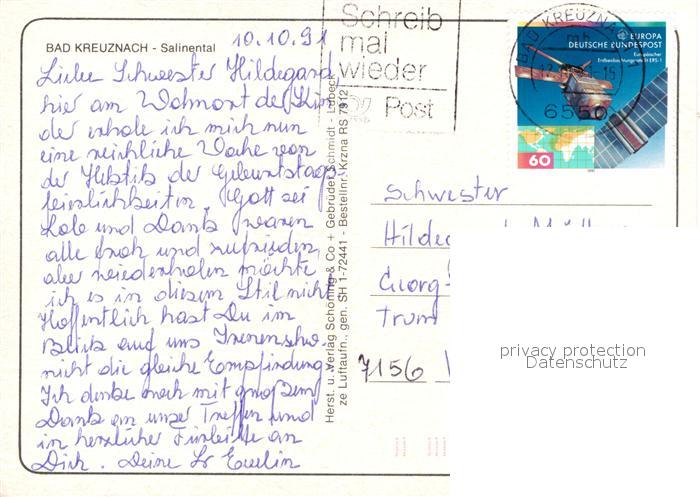 BAD KREUZNACH - Salinental
10.10.91
Liebe Schwester Hildegard,
hier am Wohnort der Kin-
der erhole ich mich nun
eine reichliche Woche von
der Hektik der Geburtstags
feierlichkeiten. Gott sei
Lob und Dank waren
alle froh und zufrieden,
aber wiederholen möchte
ich es in diesem Stil nicht
Hoffentlich hast Du im
Blick auf uns
nicht die gleiche Empfindung
Ich denke noch mit großem
Dank an unser Treffen und
in herzlicher Fürbitte an
Dich. Deine Sr Evelin
Herst. u. Verlag Schöning & Co + Gebrüder Schmidt · Lübeck
ze Luftaufn., gen. SH 1-72441 - Bestellnr. Krzna RS 7912
Schreib
mal
wieder
Post
BAD KREUZNACH
mb
-15
6550
EUROPA
DEUTSCHE BUNDESPOST
Europäischer
Erdbeobachtungssatellit ERS-1
60
Schwester
Hilde
Georg-
7156
privacy protection
Datenschutz